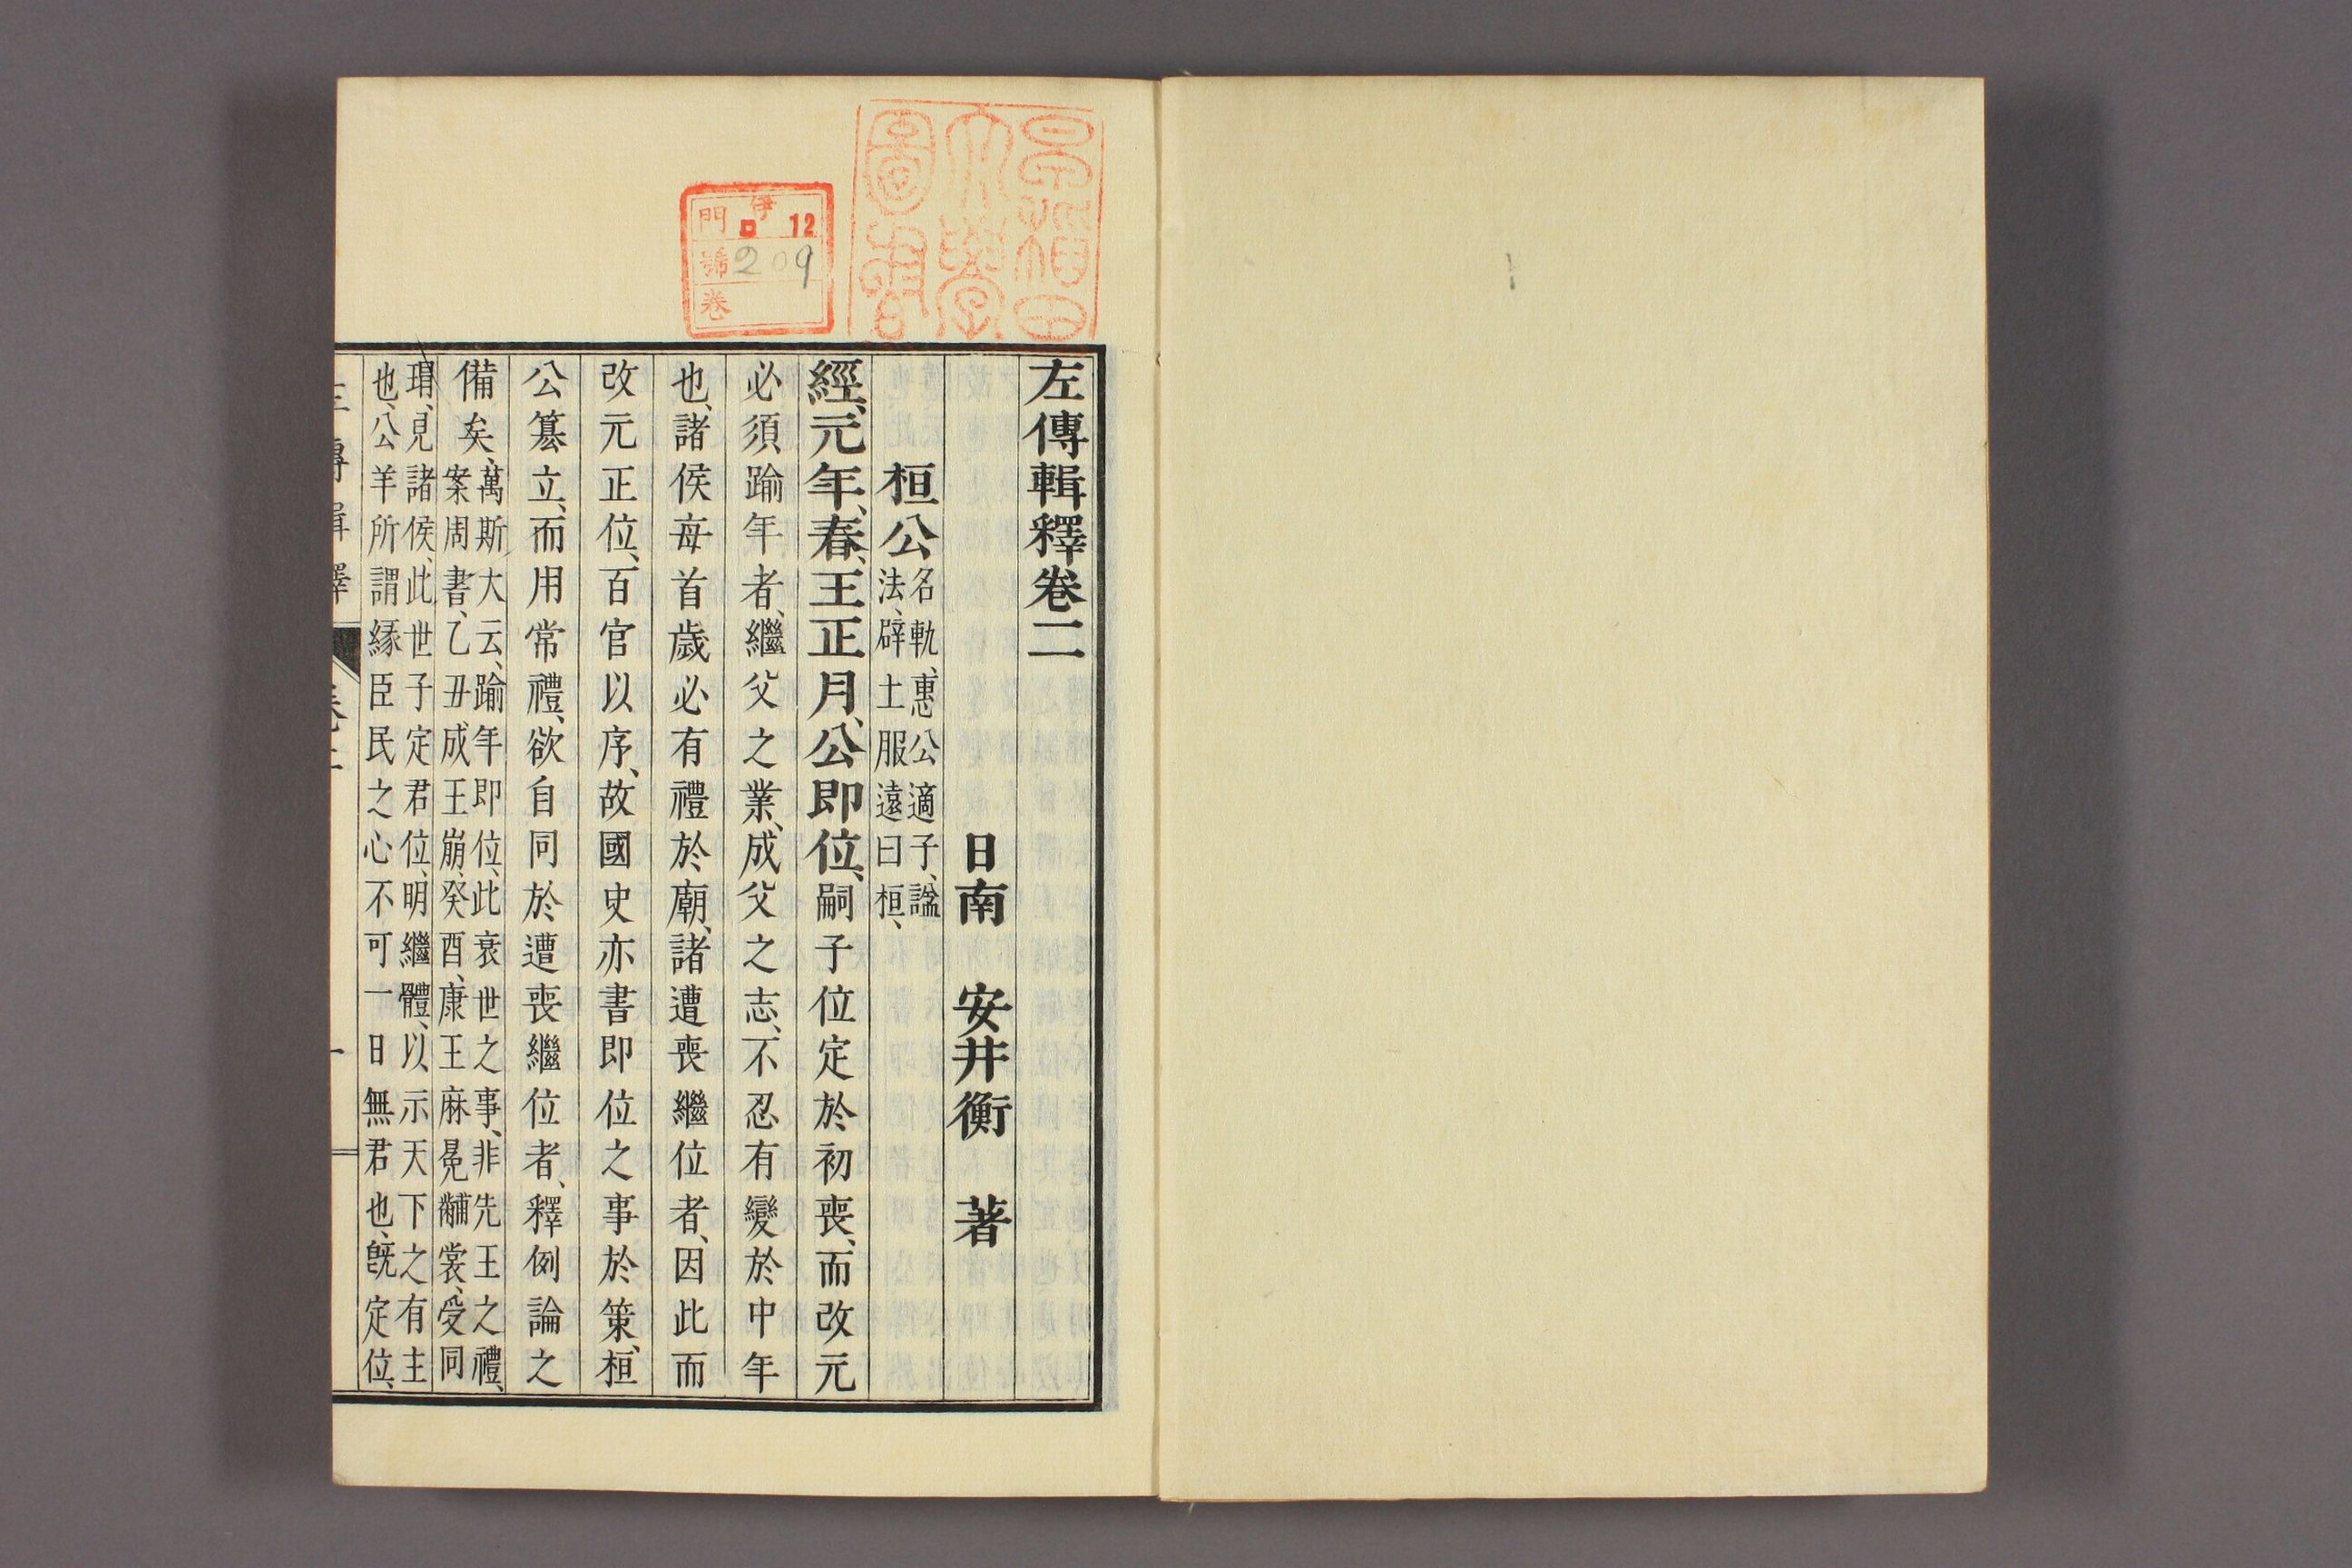 左傳輯釋卷二
日南 安井衡 著
桓公 名軌、惠公適子、諡
法、辟土服遠曰桓、
經、元年、春、王正月、公即位、嗣子位定於初喪、而改元
必須踰年者、繼父之業、成父之志、不忍有變於中年
也、諸侯每首歲必有禮於廟、諸遭喪繼位者、因此而
改元正位、百官以序、故國史亦書即位之事於策、桓
公簒立、而用常禮、欲自同於遭喪繼位者、釋例論之
備矣、萬斯大云、踰年即位、此衰世之事、非先王之禮、
案周書、乙丑、成王崩、癸酉、康王麻冕黼裳、受同
瑁、見諸侯、此世子定君位、明繼體、以示天下之有主
也、公羊所謂緣臣民之心不可一日無君也、既定位、
早稲田
大學
圖書
門 伊 ロ 12
號 209
卷